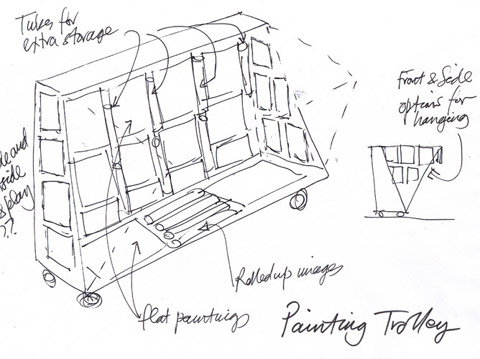 Tubes for
extra storage
Front & Side
options for
hanging
and
side
??
Rolled up images
flat paintings
Painting Trolley